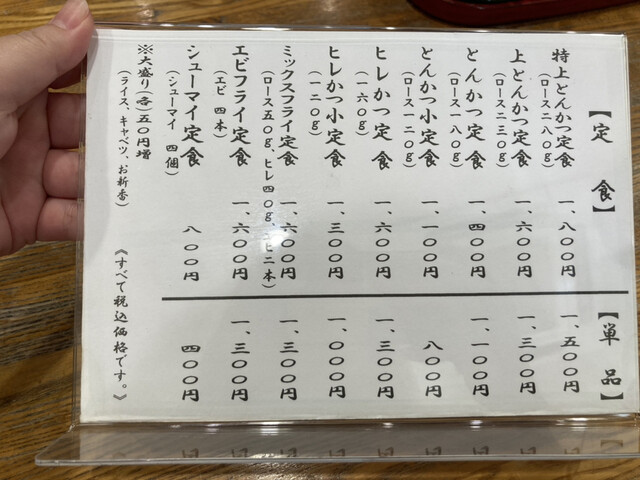 【定食】
【単品】
特上とんかつ定食 一、八〇〇円 一、五〇〇円
(ロース二八〇g)
上とんかつ定食 一、六〇〇円 一、三〇〇円
(ロース二三〇g)
とんかつ定食 一、四〇〇円 一、一〇〇円
(ロース一八〇g)
とんかつ小定食 一、一〇〇円 八〇〇円
(ロース一二〇g)
ヒレかつ定食 一、六〇〇円 一、三〇〇円
(一六〇g)
ヒレかつ小定食 一、三〇〇円 一、〇〇〇円
(一二〇g)
ミックスフライ定食 一、六〇〇円 一、三〇〇円
(ロース五〇g、ヒレ四〇g、エビ二本)
エビフライ定食 一、六〇〇円 一、三〇〇円
(エビ 四本)
シューマイ定食 八〇〇円 四〇〇円
(シューマイ 四個)
※大盛り(各)五〇円増
(ライス、キャベツ、お新香)
《すべて税込価格です。》